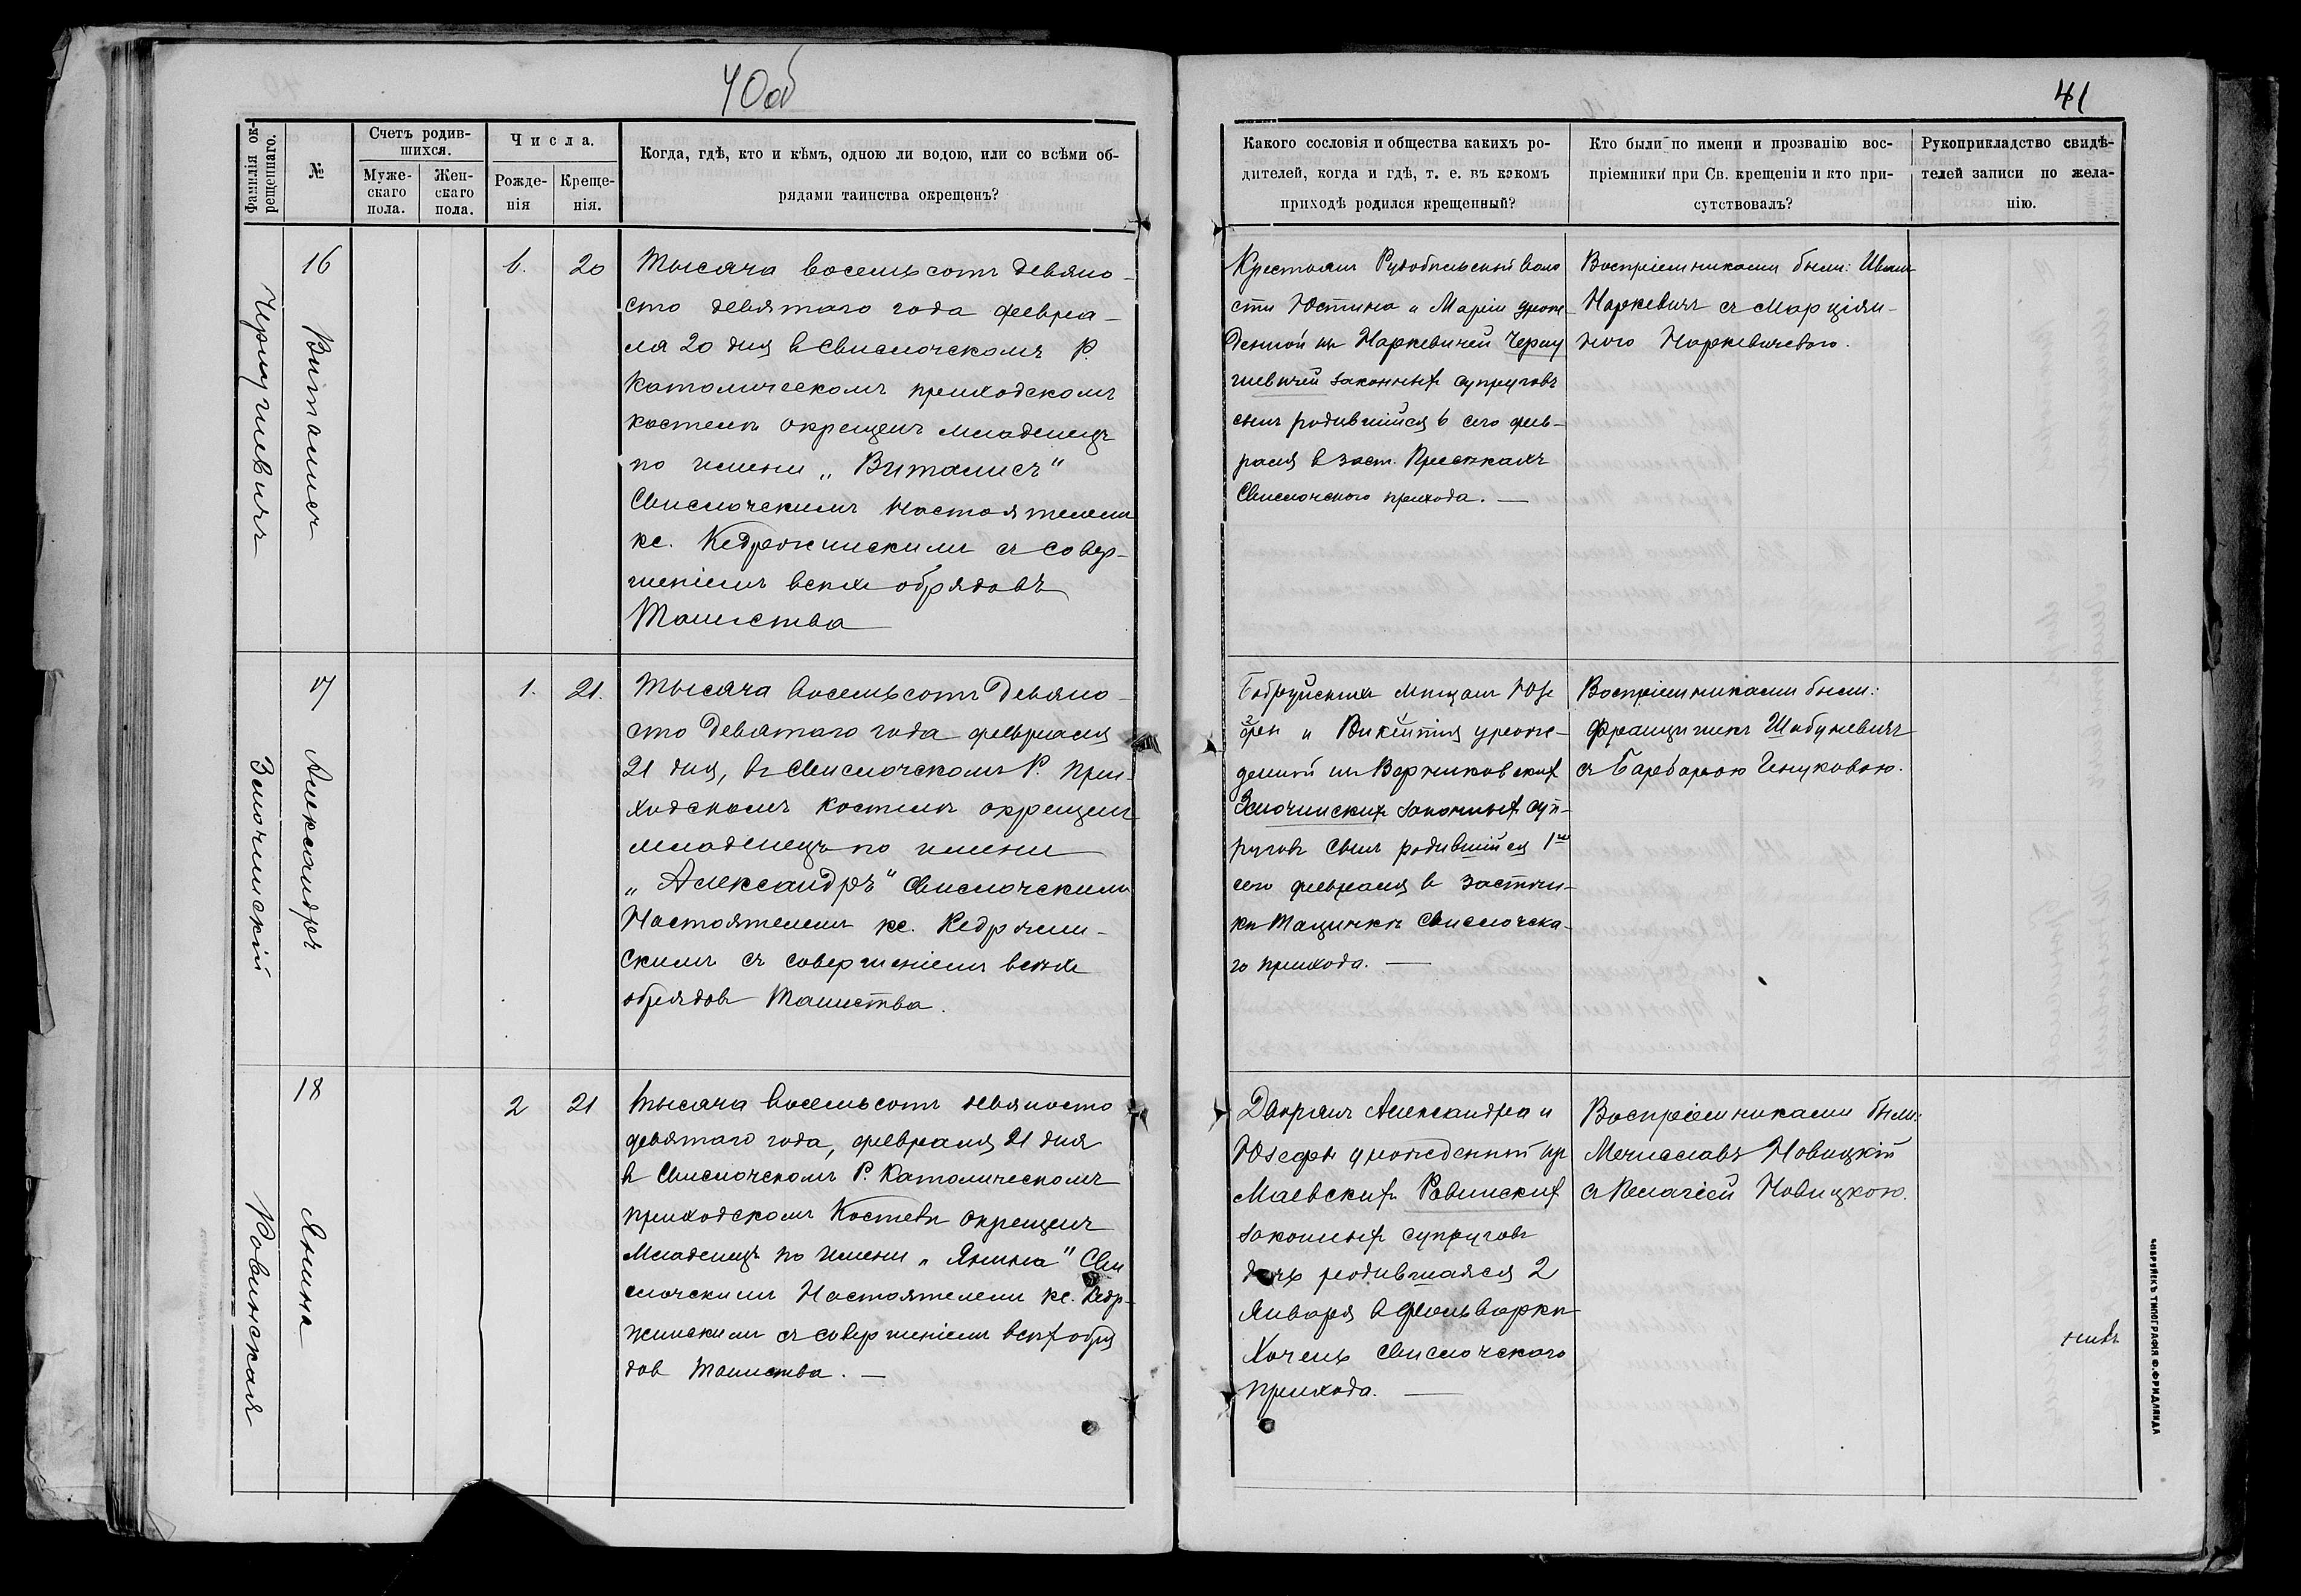 40об
Фамилія ок-
рещеннаго.
№
Счетъ родив-
шихся.
Муже-
скаго
пола.
Жен-
скаго
пола.
Числа.
Рожде-
нія
Креще-
нія.
Когда, гдѣ, кто и кѣмъ, одною ли водою, или со всѣми об-
рядами таинства окрещенъ?
16
Виталисъ
6.
20
Тысяча восемьсотъ девяно-
сто девятаго года февра-
ля 20 дня в Свислочскомъ Р.
Католическомъ приходскомъ
костелѣ окрещенъ младенецъ
по имени „Виталисъ"
Свислочскимъ Настоятелемъ
кс. Кедржинскимъ съ совер-
шеніемъ всѣхъ обрядовъ
Таинства
17
Александръ
Злочинскій
1.
21.
Тысяча восемьсотъ девяно-
сто девятаго года февраля
21 дня, въ Свислочскомъ Р. При-
ходскомъ костелѣ окрещенъ
младенецъ по имени
„Александръ" Свислочскимъ
Настоятелемъ кс. Кедржин-
скимъ съ совершеніемъ всѣхъ
обрядовъ Таинства.
18
Янина
Ровинская
2
21
Тысяча восемьсотъ девяносто
девятаго года, февраля 21 дня
в Свислочскомъ Р. Католическомъ
приходскомъ Костелѣ окрещенъ
Младенецъ по имени „Янина" Сви
слочскимъ Настоятелемъ кс. Кедр-
жинскимъ съ совершеніемъ всѣхъ обря
довъ Таинства. —
41
Какого сословія и общества какихъ ро-
дителей, когда и гдѣ, т. е. въ какомъ
приходѣ родился крещенный?
Кто были по имени и прозванію вос-
пріемники при Св. крещеніи и кто при-
сутствовалъ?
Рукоприкладство свидѣ-
телей записи по жела-
нію.
Крестьянъ Рудобельской воло
сти Юстина и Маріи урож-
денной изъ Наркевичей
законныхъ супруговъ
сынъ родившійся 6 сего фев-
раля в заст.
Свислочского прихода. —
Воспріемниками были: Иванъ
Наркевичъ съ Марціян-
ною Наркевичевою.
Бобруйскихъ мѣщанъ Юзе
фа и урож-
денной изъ
Злочинскихъ законныхъ суп-
руговъ сынъ родившійся 1го
сего февраля в застѣн-
кѣ Свислочска-
го прихода. —
Воспріемниками были:
Францишекъ Шабуневичъ
съ Барбарою
Дворянъ Александра и
Юзефы урожденной изъ
Маевскихъ Ровинскихъ
законныхъ супруговъ
дочь родившаяся 2
Января в фольваркѣ
Свислочского
прихода. —
Воспріемниками были:
Мечиславъ Новицкій
съ Пелагіей Новицкою.
ТИПОГРАФІЯ Ф. ФРИДЛЯНДА